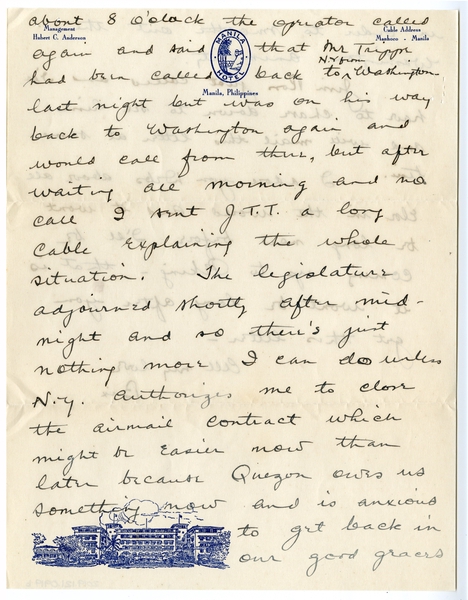 about 8 o'clock the operator called
Management
Hubert C. Anderson
Cable Address
Manhoco - Manila
MANILA
HOTEL
Manila, Philippines
again and said that Mr Trippe
had been called back to Washington
from N.Y.
last night but was on his way
back to Washington again and
would call from there, but after
waiting all morning and no
call I sent J.T.T. a long
cable explaining the whole
situation. The legislature
adjourned shortly after mid-
night and so there's just
nothing more I can do unless
N.Y. authorizes me to close
the airmail contract which
might be easier now than
later because Quezon owes us
something now and is anxious
to get back in
our good graces